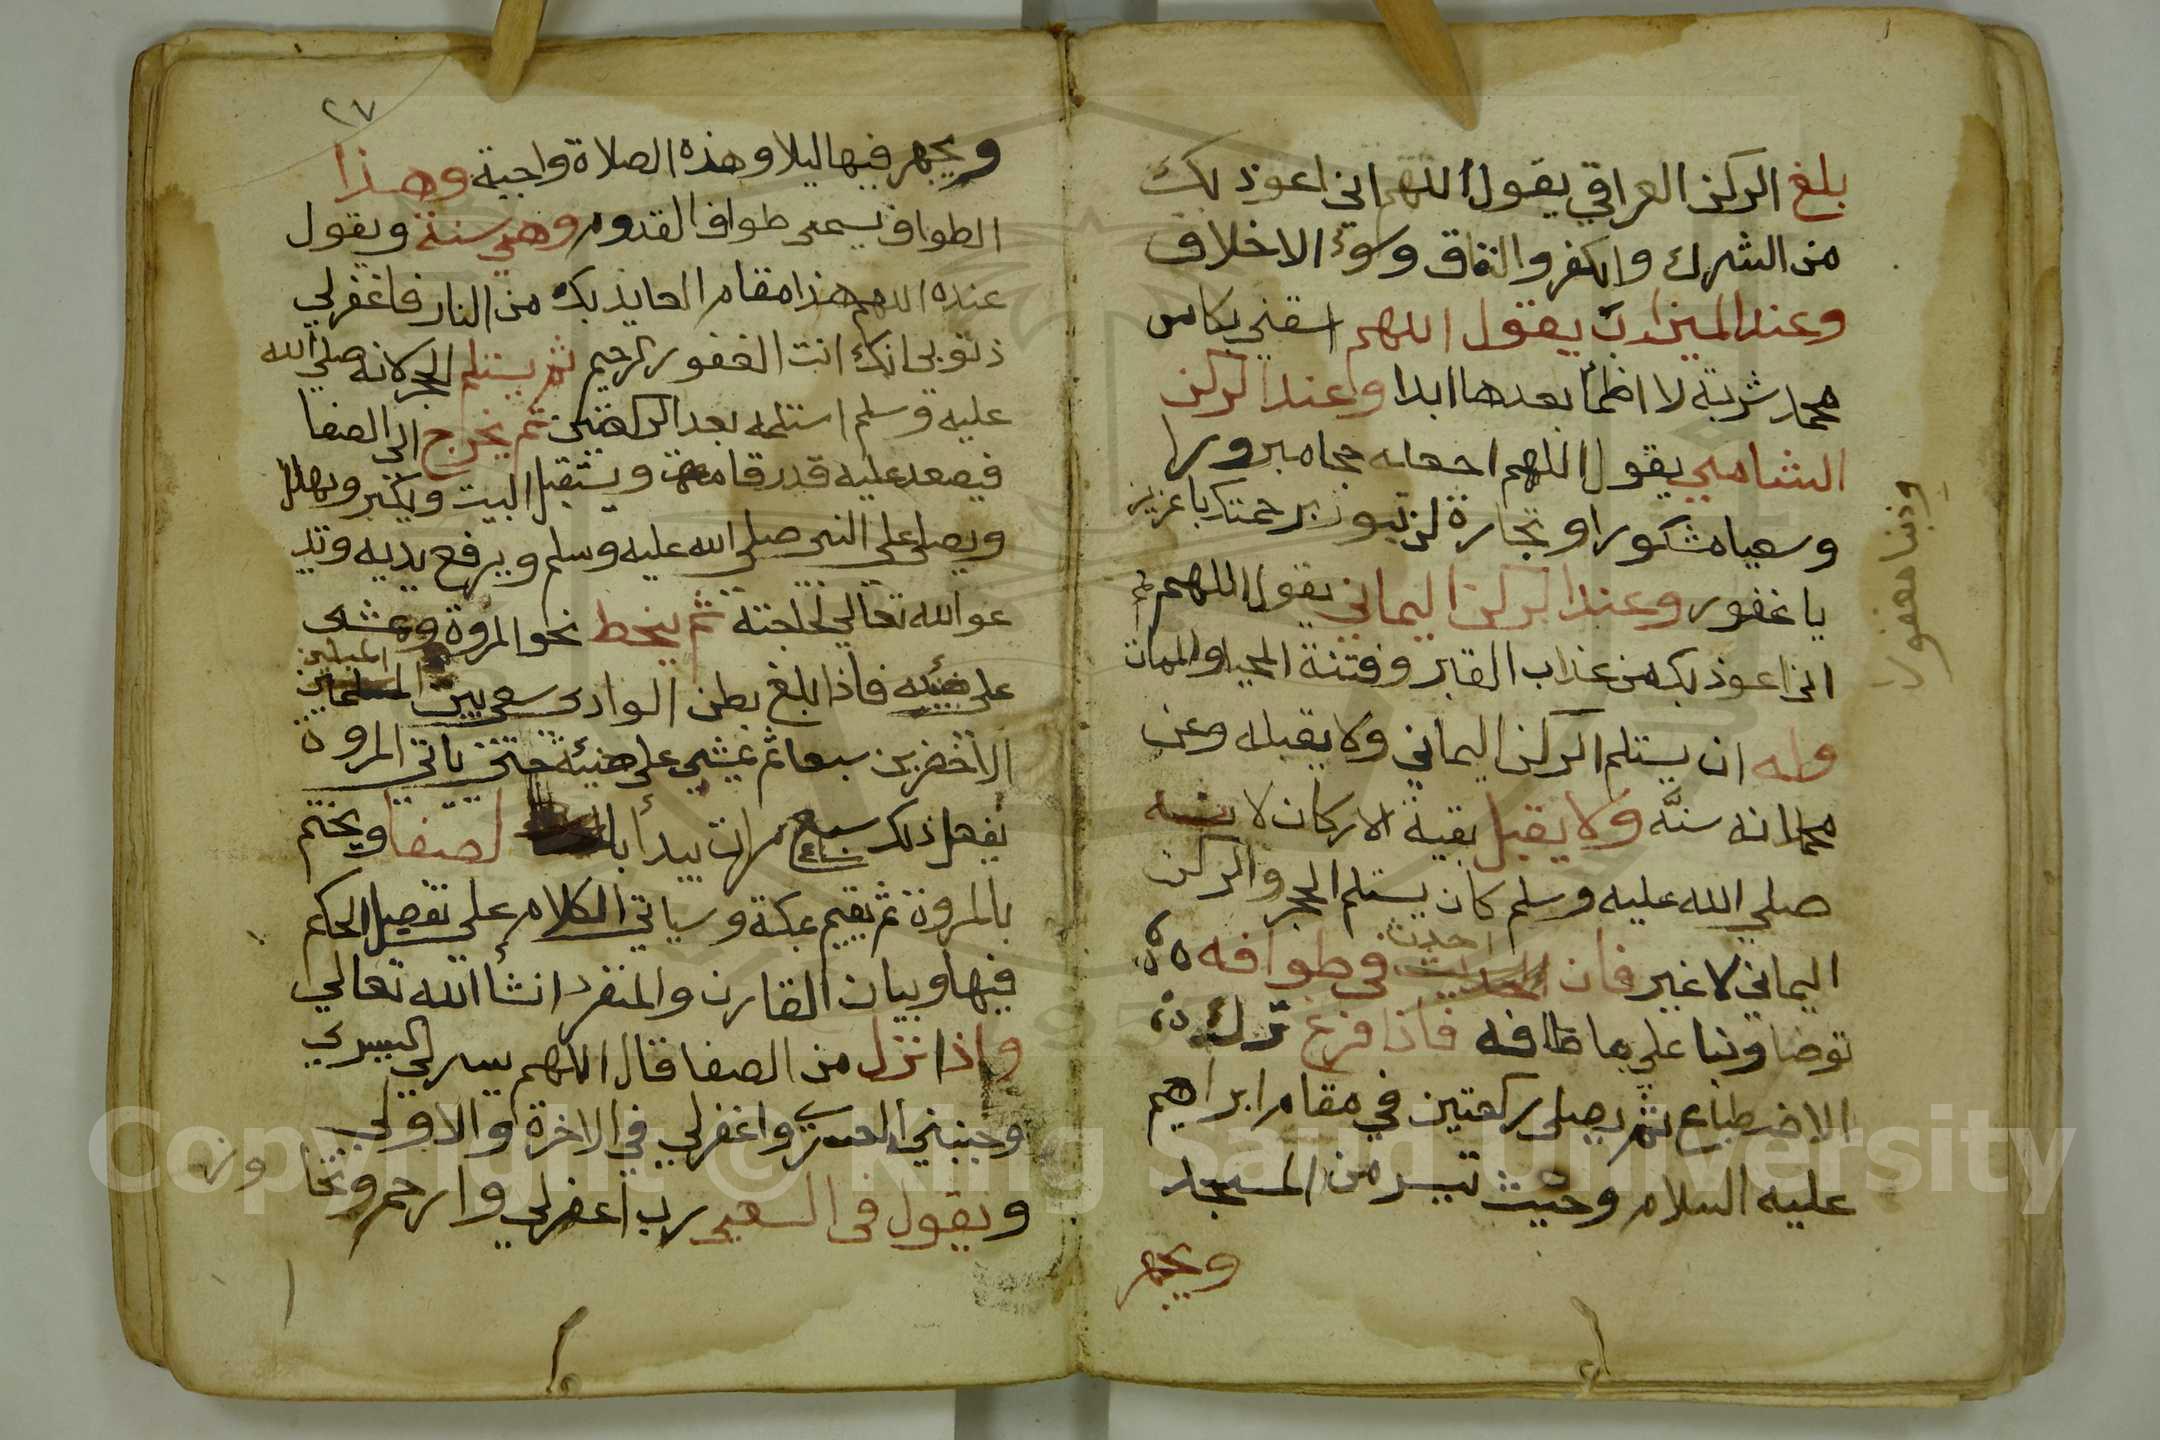 بلغ الركن العراقي يقول اللهم اني اعوذ بك
من الشرك والكفر والنفاق وسوء الاخلاق
وعند الميزاب يقول اللهم اسقني بكاس
محمد شربة لا اظمأ بعدها ابدا وعند الركن
الشامي يقول اللهم اجعله حجا مبرورا
وسعيا مشكورا وتجارة لن تبور برحمتك يا عزيز
يا غفور وعند الركن اليماني يقول اللهم
اني اعوذ بك من عذاب القبر وفتنة المحيا والممات
وله ان يستلم الركن اليماني ولا يقبله وعن
محمد انه سنة ولا يقبل بقية الاركان لانه
صلي الله عليه وسلم كان يستلم الحجر والركن
اليماني لا غير فان احدث في طوافه
توضا وبنا علي ما طافه فاذا فرغ ترك
الاضطباع ثم يصلي ركعتين في مقام ابراهيم
عليه السلام وحيث تيسر من المسجد
ويجهر
وذنبا مغفورا
٢٧
ويجهر فيها ليلا وهذه الصلاة واجبة وهذا
الطواف يسمي طواف القدوم وهي سنة ويقول
عنده اللهم هذا مقام العايذ بك من النار فاغفر لي
ذنوبي انك انت الغفور الرحيم ثم يستلم الحجر لانه صلي الله
عليه وسلم استلمه بعد الركعتين ثم يخرج الي الصفا
فيصعد عليه قدر قامة ويستقبل البيت ويكبر ويهلل
ويصلي علي النبي صلي الله عليه وسلم ويرفع يديه ويد
عوا الله تعالي لحاجته ثم ينحط نحو المروة ويمشي
علي هنيئه فاذا بلغ بطن الوادي سعي بين الميلين
الاخضرين سبعا ثم يمشي علي هنيئة حتي ياتي المروة
يفعل ذلك سبع مرات يبدأ بالصفا ويختم
بالمروة ثم يقيم بمكة وسياتي الكلام علي تفصيل الحكم
فيها وبيان القارن والمنفرد انشأ الله تعالي
واذا نزل من الصفا قال اللهم يسر لي اليسري
وجنبني العسري واغفر لي في الاخرة والاولي
ويقول في السعي رب اغفر لي وارحم وتجا
وز
Copyright © King Saud University